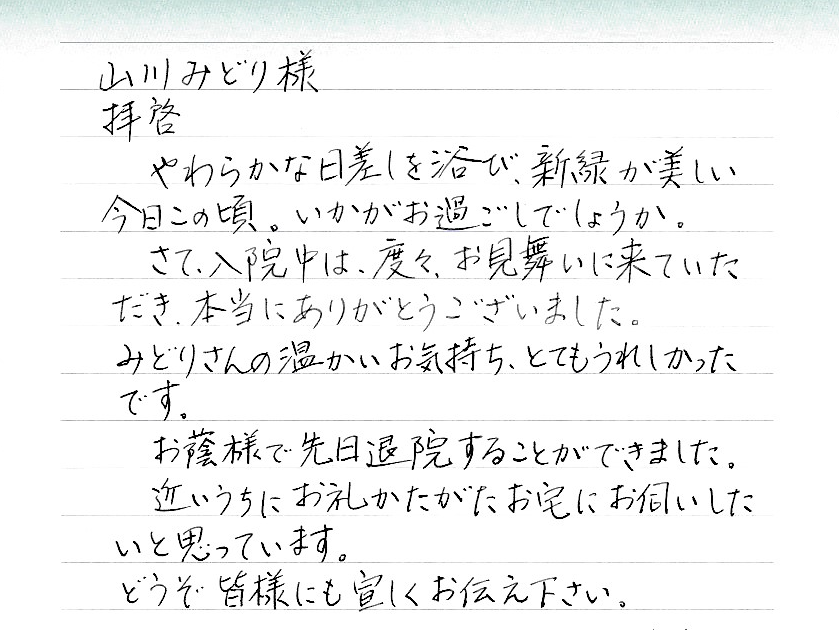 山川みどり様
拝啓
やわらかな日差しを浴び、新緑が美しい
今日この頃。いかがお過ごしでしょうか。
さて、入院中は、度々、お見舞いに来ていた
だき、本当にありがとうございました。
みどりさんの温かいお気持ち、とてもうれしかった
です。
お蔭様で先日退院することができました。
近いうちにお礼かたがたお宅にお伺いした
いと思っています。
どうぞ皆様にも宜しくお伝え下さい。